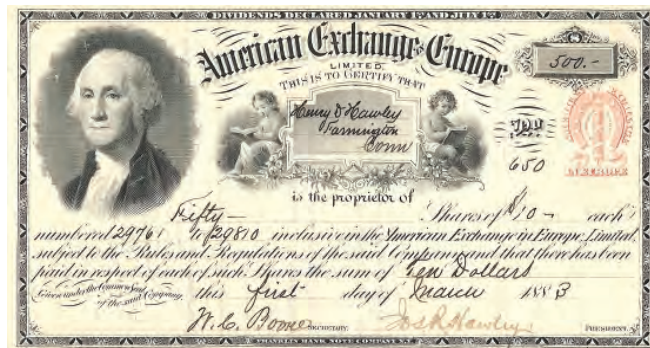 DIVIDENDS DECLARED JANUARY 1ST AND JULY 1ST
American Exchange in Europe
LIMITED.
THIS IS TO CERTIFY THAT
500.-
Henry D Hawley
Farmington
Conn
No
650
is the proprietor of
Fifty — Shares of $10 - each
numbered 29761 to 29810 inclusive in the American Exchange in Europe, Limited,
subject to the Rules and Regulations of the said Company and that there has been
paid in respect of each of such Shares the sum of Ten Dollars
Given under the Common Seal of the said Company, this first day of March 1883
W. C. Boone SECRETARY. Jos R Hawley PRESIDENT.
FRANKLIN BANK NOTE COMPANY N.Y.